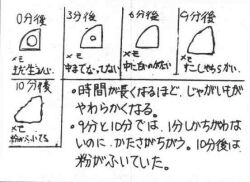 0分後
3分後
6分後
9分後
メモ
まだ生っぽい。
メモ
中まで
メモ
中に白い
メモ
すこしやわらかい。
10分後
メモ
粉がふいてる
・時間が長くなるほど、じゃがいもが
やわらかくなる。
・9分と10分では、1分しかちがわな
いのに、かたさがちがう。10分後は
粉がふいていた。